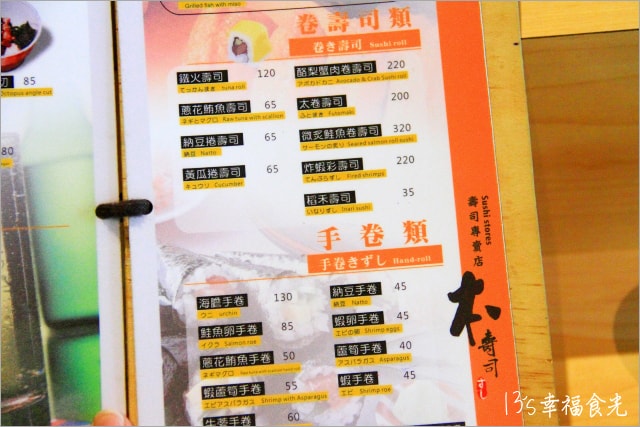 Grilled fish with miso
切 85
Octopus angle cut
80
卷壽司類
巻き壽司 Sushi roll
鐵火壽司 120
てっかんまき tuna roll
蔥花鮪魚壽司 65
ネギヒマグロ Raw tuna with scallion
納豆捲壽司 65
納豆 Natto
黃瓜捲壽司 65
キュウリ Cucumber
酪梨蟹肉卷壽司 220
アボカドカニ Avocado & Crab Sushi roll
太卷壽司 200
ふとまき Futomaki
微炙鮭魚卷壽司 320
サーモンの炙り Seared salmon roll sushi
炸蝦彩壽司 220
てんぷらずし Fried shrimps
稻禾壽司 35
いなりずし Inari sushi
手卷類
手巻きずし Hand-roll
海膽手卷 130
ウニ urchin
鮭魚卵手卷 85
イクラ Salmon roe
蔥花鮪魚手卷 50
ネギマグロ Raw tuna with scallion hand roll
蝦蘆筍手卷 55
エビアスパラガス Shrimp with Asparagus
牛蒡手卷 60
納豆手卷 45
納豆 Natto
蝦卵手卷 45
エビの卵 Shrimp eggs
蘆筍手卷 40
アスパラガス Asparagus
蝦手卷 45
エビ Shrimp roe
Sushi stores
壽司專賣店
木壽司
13's幸福食光